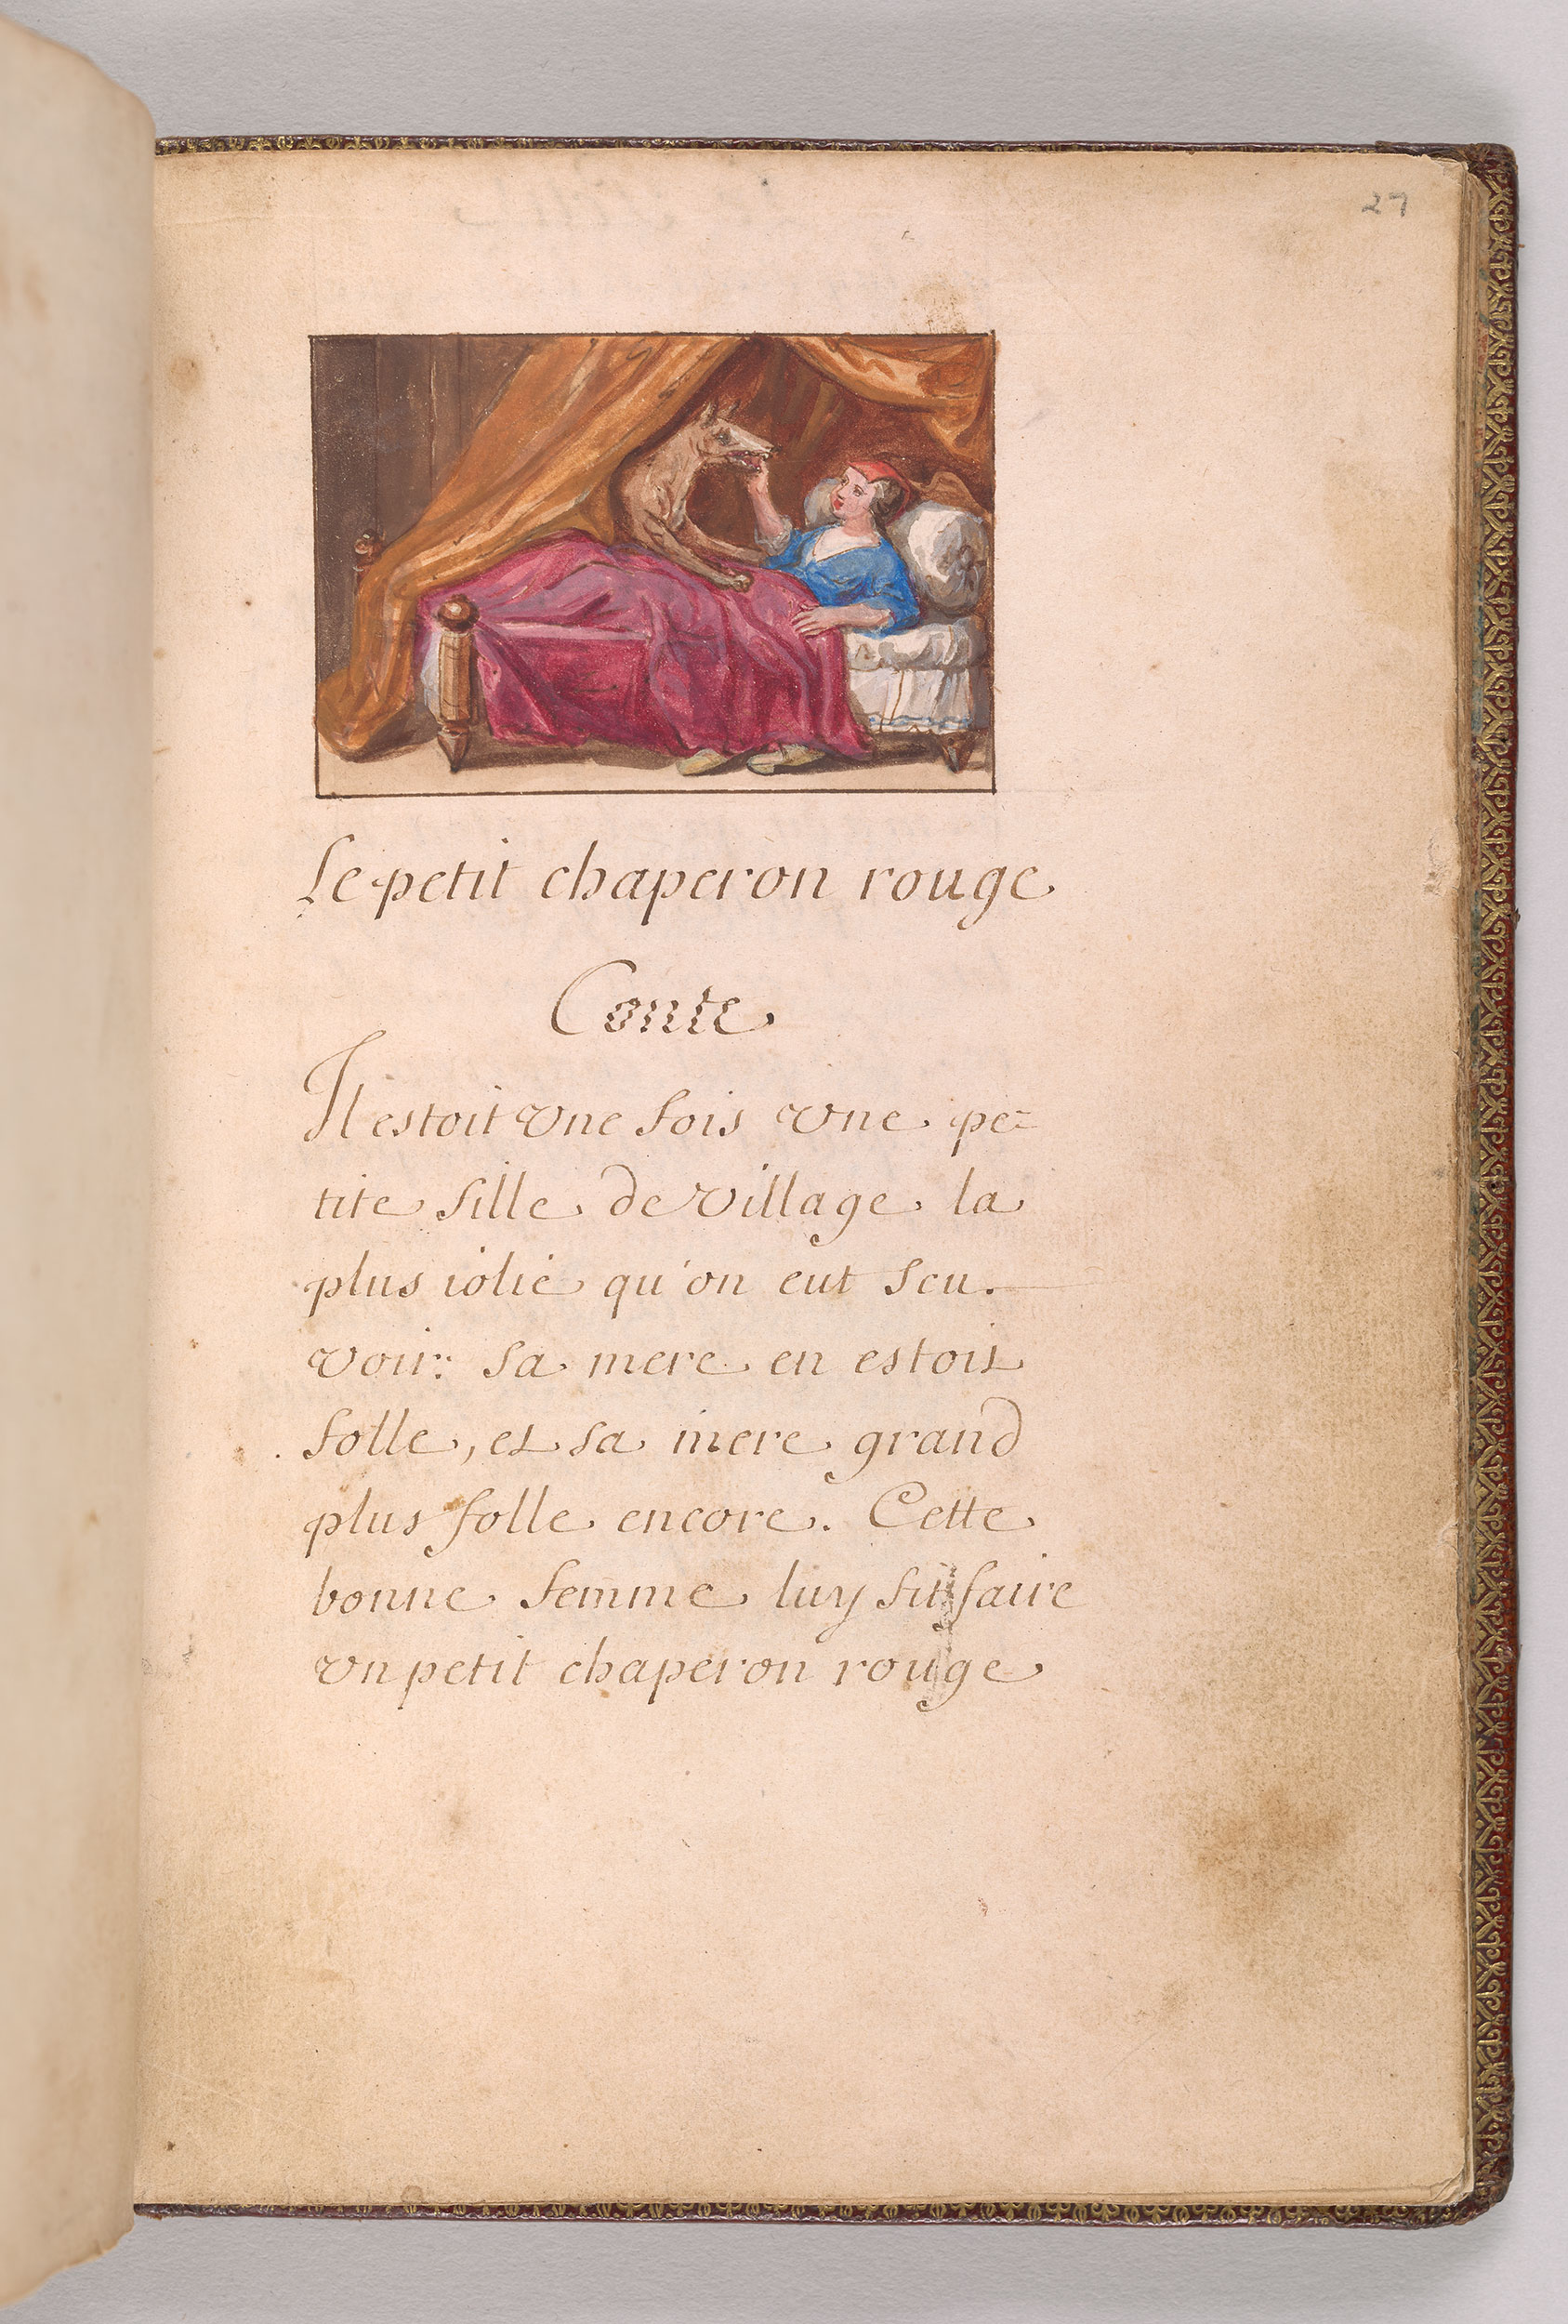 27
Le petit chaperon rouge
Conte
Il estoit vne fois vne pe=
tite fille de village la
plus iolie qu'on eut sceu
voir: sa mere en estoit
folle, et sa mere grand
plus folle encore. Cette
bonne femme luy fit faire
vn petit chaperon rouge